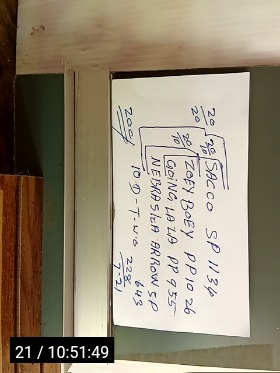 20/20
20 SACCO SP 1134
20/10 ZOEY BOEY PP 1026
GOING LA LA PP 955
NEBRASKA ARROW SP
643
10 - T.W.O 228
200
21 / 10:51:49